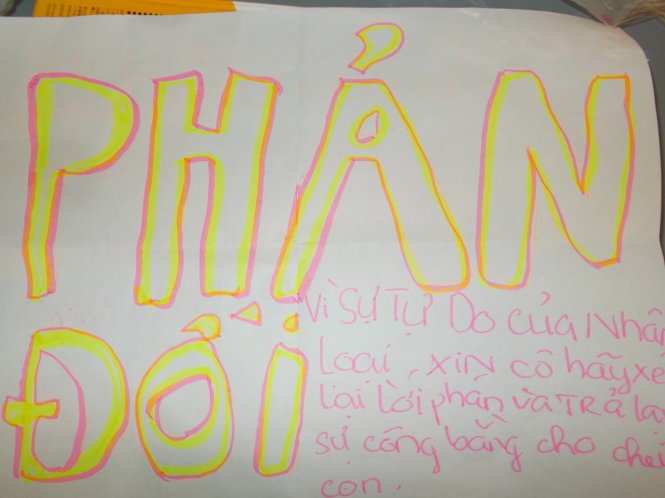 PHẢN
ĐỐI
Vì Sự Tự Do của Nhân
loại, xin cô hãy xé
lại lời phán và TRả lại
sự công bằng cho
con.